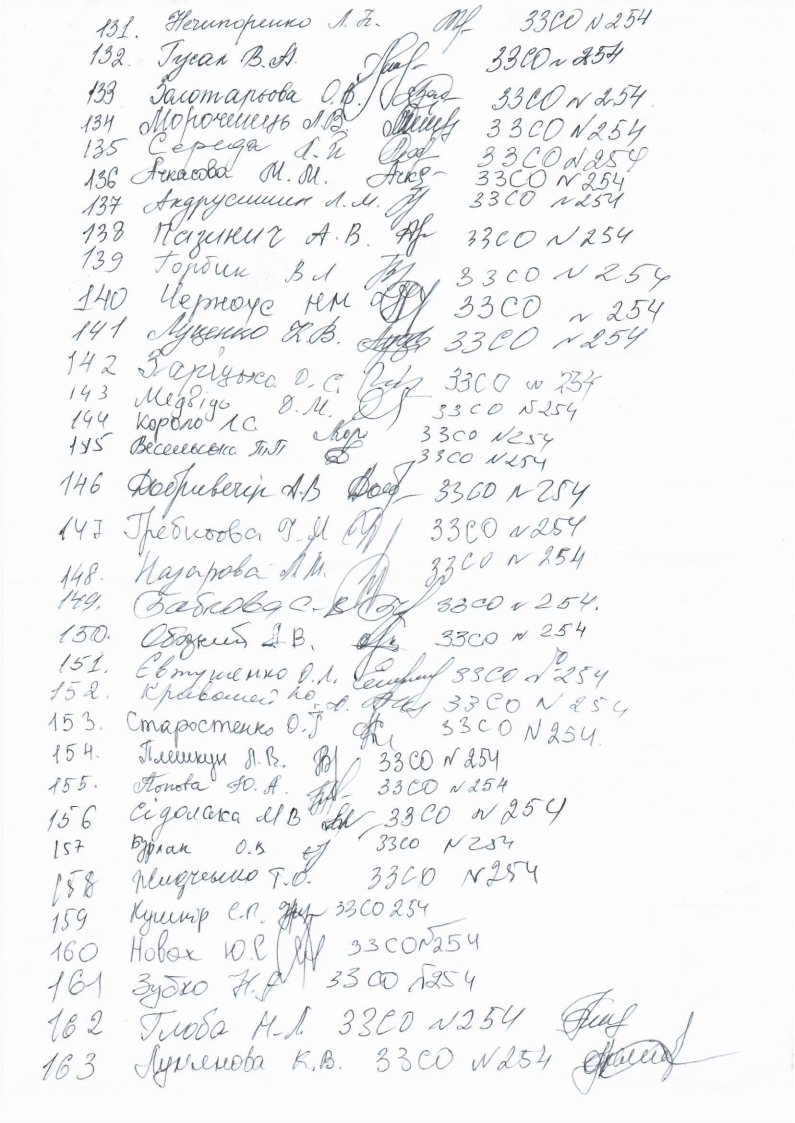 131. Нечипоренко Л. ЗЗСО N 254
132. Гусак В.А. ЗЗСО N 254
133 Золотарьова О.В. ЗЗСО N 254.
134 Морочинець Л.В ЗЗСО N 254
135 Середа ЗЗСО N 254
136 Ачкасова М. М. ЗЗСО N 254
137 Андрусишин Л.М. ЗЗСО N 254
138 Пазинич А. В. ЗЗСО N 254
139 Горбик В Л ЗЗСО N 254
140 Черноус НМ ЗЗСО N 254
141 Луценко К.В. ЗЗСО N 254
142 Заріцька О. С. ЗЗСО N 254
143 Медвідь О.М. ЗЗСО N254
144 Короло Л.С. ЗЗСО N254
145 ЗЗСО N254
146 Добривечір А.В ЗЗСО N 254
147 Г.М ЗЗСО N 254
148. Назарова Л.М. ЗЗСО N 254
149. Бабкова С. В ЗЗСО N 254.
150. В. ЗЗСО N 254
151. Євтушенко О.Л. ЗЗСО N 254
152. ЗЗСО N 254
153. Старостенко О.Г ЗЗСО N 254.
154. Плешкун Л.В. ЗЗСО N 254
155. Попова Ю. А. ЗЗСО N 254
156 Сідолака М В ЗЗСО N 254
157 Бурлак О.В ЗЗСО N 254
158 Т.О. ЗЗСО N 254
159 Кушнір С.П. ЗЗСО 254
160 Новак Ю.С ЗЗСО N254
161 Зубко Н. ЗЗСО N254
162 Глоба Н.Л. ЗЗСО N 254
163 Лук'янова К.В. ЗЗСО N 254